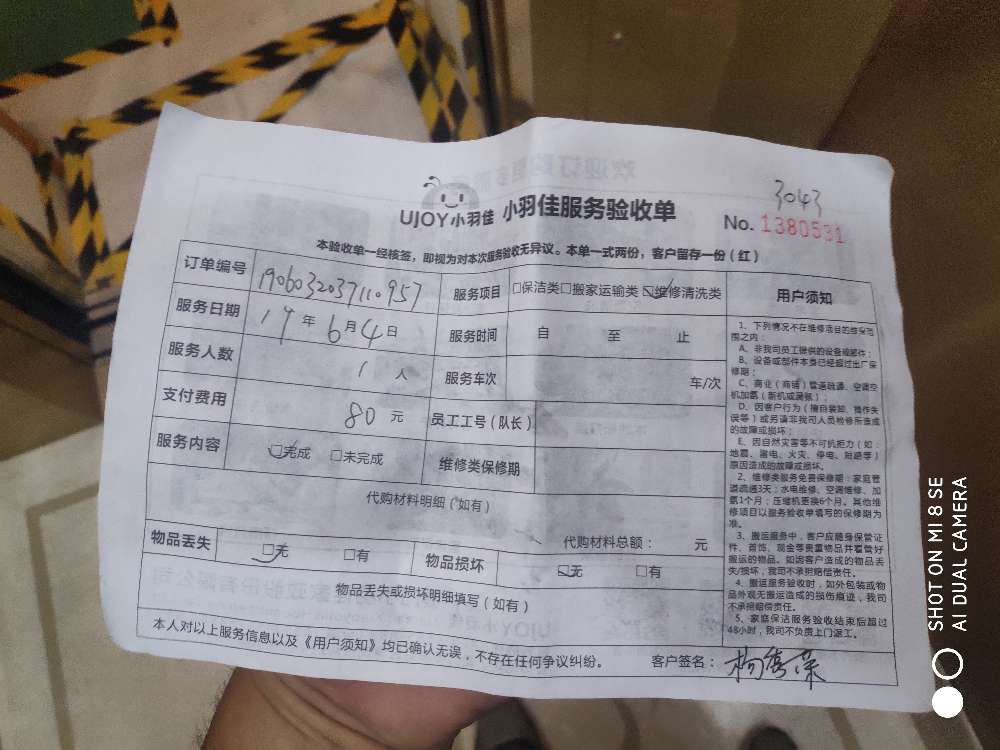 3043
UJOY小羽佳 小羽佳服务验收单 No. 1380531
本验收单一经核签，即视为对本次服务验收无异议。本单一式两份，客户留存一份（红）
订单编号 190603203711０957 服务项目 □保洁类□搬家运输类☑维修清洗类
服务日期 19年6月4日 服务时间 自 至 止
服务人数 1人 服务车次 车/次
支付费用 80元 员工工号（队长）
服务内容 ☑完成 □未完成 维修类保修期
代购材料明细（如有）
代购材料总额： 元
物品丢失 ☑无 □有 物品损坏 ☑无 □有
物品丢失或损坏明细填写（如有）
本人对以上服务信息以及《用户须知》均已确认无误，不存在任何争议纠纷。 客户签名：
用户须知
1、下列情况不在维修项目的维保范
围之内：
A、非我司员工提供的设备或部件；
B、设备或部件本身已经超过出厂保
修期；
C、商业（商铺）管道疏通、空调空
机加氨（新机或漏氨）；
D、因客户行为（擅自装卸、操作失
误等）或另请非我司人员检修所造成
的故障或损坏；
E、因自然灾害等不可机拒力（如：
地震、雷电、火灾、停电、短路等）
原因造成的故障或损坏。
2、维修类服务免费保修期：家庭管
道疏通3天；水电维修、空调维修、加
氨1个月；压缩机更换6个月。其他维
修项目以服务验收单填写的保修期为
准。
3、搬运服务中，客户应随身保管证
件、首饰、现金等贵重物品并看管好
搬运的物品。如因客户造成的物品丢
失/损坏，我司不承担赔偿责任。
4、搬运服务验收时，如外包装或物
品外观无搬运造成的损伤痕迹，我司
不承担赔偿责任。
5、家庭保洁服务验收结束后超过
48小时，我司不负责上门返工。
SHOT ON MI 8 SE
AI DUAL CAMERA